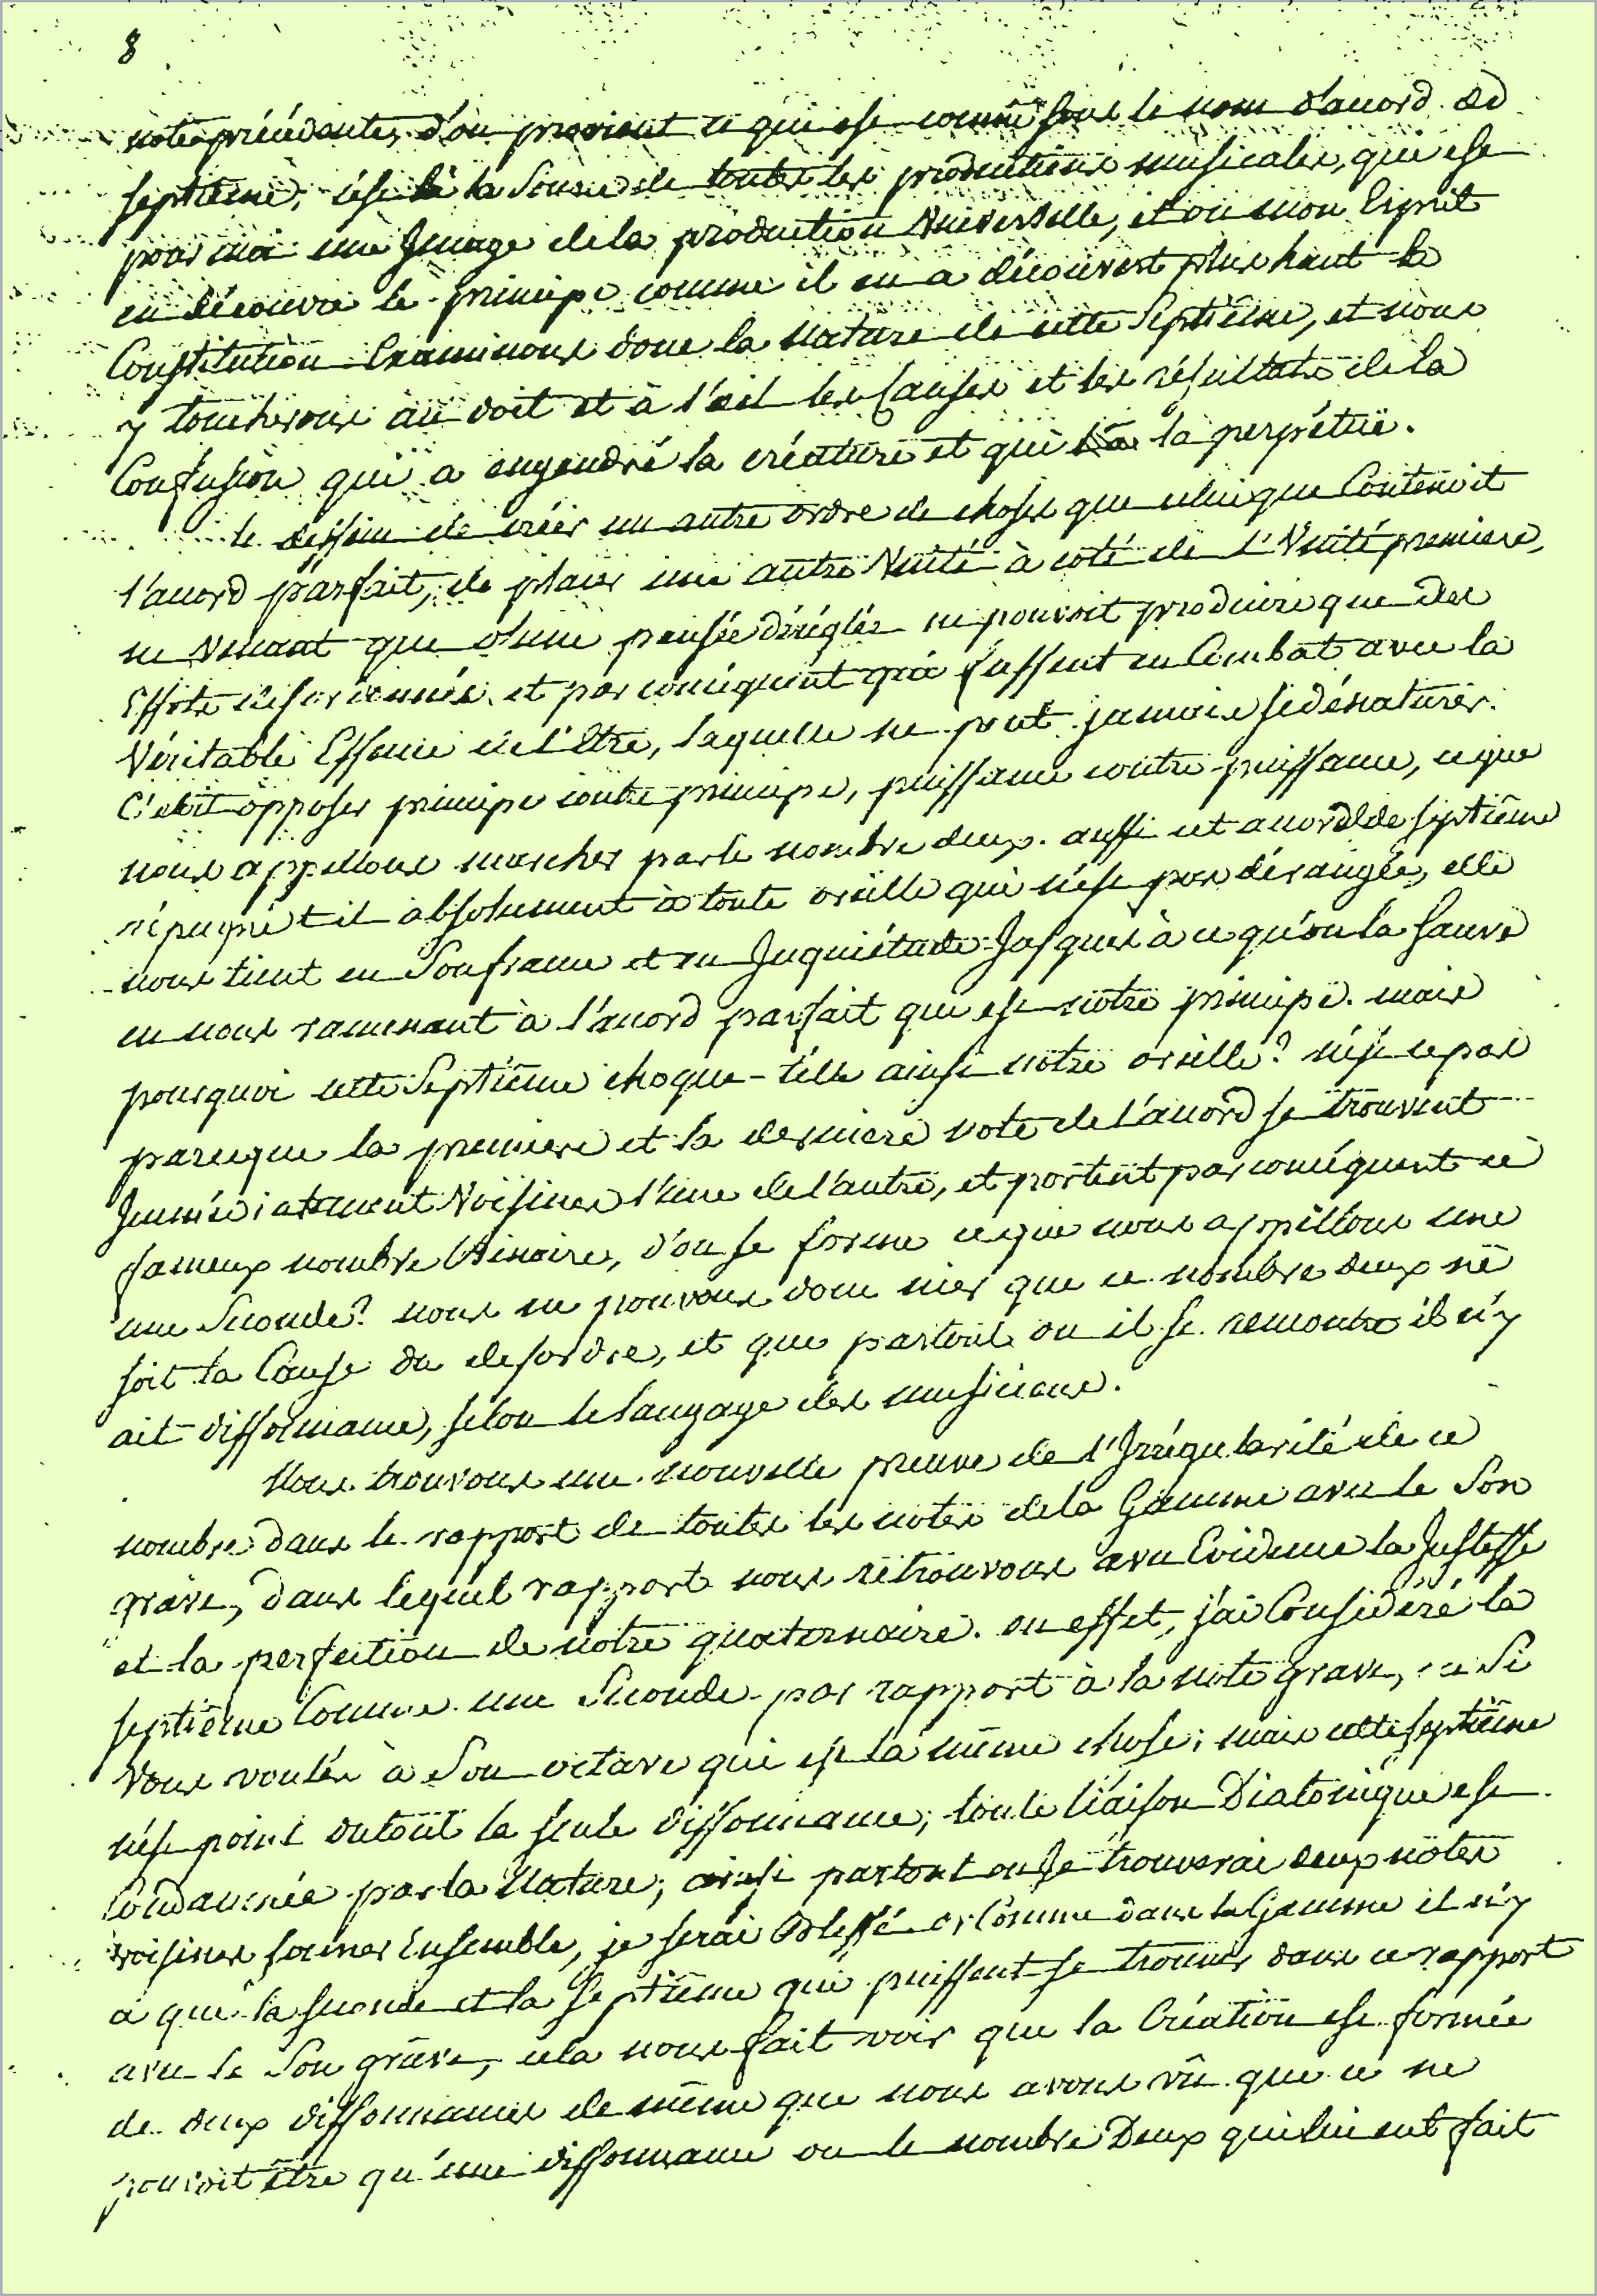 8
notes précédentes, d'ou provient ce qui est connu sous le nom d'accord de
septiême, c'est là la source de toutes les productions musicales, qui est
pour moi une Image de la production Universelle, et ou mon Esprit
en découvre le principe comme il en a découvert plus haut la
Constitution. Examinons donc la Nature de cette Septiême, et nous
y toucherons au doit et à l'oeil les Causes et les résultats de la
Confusion qui a engendré la créature et qui la perpétue.
le dessein de créer un autre ordre de choses que celui que Contenoit
l'accord parfait, de placer une autre Unité à coté de l'Unité premiere,
ne Venant que d'une pensée déréglée ne pouvoit produire que des
Effets désordonnés et par conséquent qui fussent en Combat avec la
Véritable Essence de l'Etre, laquelle ne peut jamais se dénaturer.
C'étoit opposer principe contre principe, puissance contre puissance, ce que
nous appellons marcher par le nombre deux. aussi cet accord de septiême
répugne t il absolument à toute oreille qui n'est pas dérangée, elle
nous tient en Soufrance et en Inquiétude Jusques à ce qu'on la Sauve
en nous ramenant à l'accord parfait qui est notre principe. mais
pourquoi cette Septiême choque-t'elle ainsi notre oreille? n'est ce pas
parceque la premiere et la derniere note de l'accord se trouvent
Immédiatement Voisines l'une de l'autre, et portent par conséquent ce
fameux nombre binaire, d'ou se forme ce que nous appellons une
une Seconde? nous ne pouvons donc nier que ce nombre deux ne
soit la Cause du desordre, et que partout ou il se rencontre il n'y
ait dissonnance, selon le langage des musiciens.
Nous trouvons une nouvelle preuve de l'Irrégularité de ce
nombre dans le rapport de toutes les notes de la Gamme avec le Son
grave, dans lequel rapport nous retrouvons avec Evidence la Justesse
et la perfection de notre quaternaire. en effet, j'ai Consideré la
septiême Comme une Seconde par rapport à la note grave, ou Si
Vous voulés à Son octave qui est la même chose; mais cette septiême
n'est point du tout la seule dissonnance; toute liaison Diatonique est
Condamnée par la Nature; ainsi partout ou Je trouverai deux notes
voisines sonner Ensemble, je serai blessé or Comme dans la Gamme il n'y
a que la seconde et la Septiême qui puissent se trouver dans ce rapport
avec le Son grave, cela nous fait voir que la Création est formée
de deux dissonnances de même que nous avons vû que ce ne
pouvoit être qu'une dissonnance ou le nombre Deux qui lui eut fait